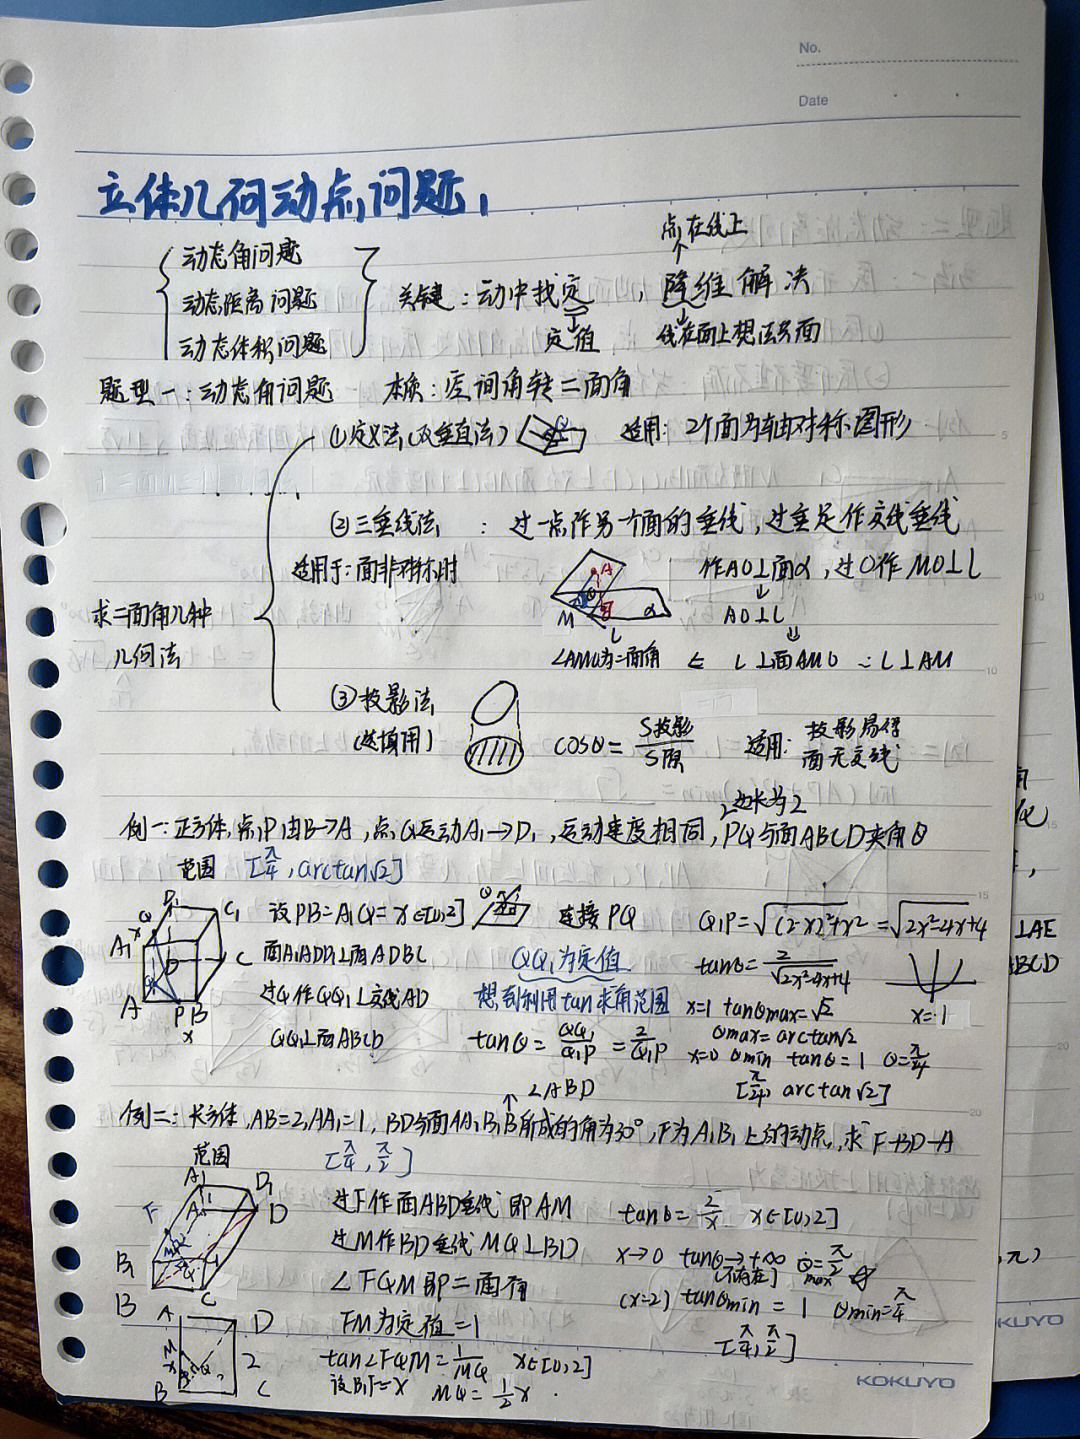 No.
Date
立体几何动点问题
动态角问题
动态距离问题
动态体积问题
关键：动中找定，降维解决
点在线上
定值
线在面上想法共面
题型一：动态角问题 本质：空间角转二面角
求二面角几种
几何法
①定义法(双垂直法) 适用：2个面为轴对称图形
②三垂线法：过一点作另一个面的垂线，过垂足作交线垂线
适用于：面非对称时
作AO⊥面α，过O作MO⊥l
AO⊥l
∠AMO为二面角 ⇐ l⊥面AMO ∴l⊥AM
A
M
α
L
③投影法
(选填用)
cosθ=S投影/S原 适用：投影易得
面无交线
边长为2
例一：正方体，点P由B→A，点Q运动A₁→D₁，运动速度相同，PQ与面ABCD夹角θ
范围 [π/4, arctan√2]
设PB=A₁Q=x∈[0,2] 连接PQ Q₁P=√((2-x)²+x²)=√(2x²-4x+4)
面A₁ADD₁⊥面ADBC QQ₁为定值 tanθ=2/√(2x²-4x+4)
过Q作QQ₁⊥交线AD 想到利用tan求角范围 x=1 tanθmax=√2 x=1
QQ₁⊥面ABCD tanθ=QQ₁/Q₁P=2/Q₁P θmax=arctan√2
x=0 θmin tanθ=1 θ=π/4
[π/4, arctan√2]
D₁
C₁
Q
A₁
x
D
C
A
P B
x
∠ABD
例二：长方体，AB=2，AA₁=1，BD与面AA₁B₁B所成的角为30°，F为A₁B₁上的动点，求F-BD-A
范围 [π/4, π/2]
过F作面ABD垂线 即AM tanθ=2/x x∈[0,2]
过M作BD垂线 MQ⊥BD x→0 tanθ→+∞ θmax=π/2
(不存在)
∠FQM即二面角 (x=2) tanθmin=1 θmin=π/4
FM为定值=1 [π/4, π/2]
tan∠FQM=1/MQ x∈[0,2]
设B₁F=x MQ=1/2x
A₁
D₁
F
A
D
M
Q
B₁
C₁
B
C
A D
M
x
Q
2
B C
KOKUYO
⊥AE
BCD
KUYO